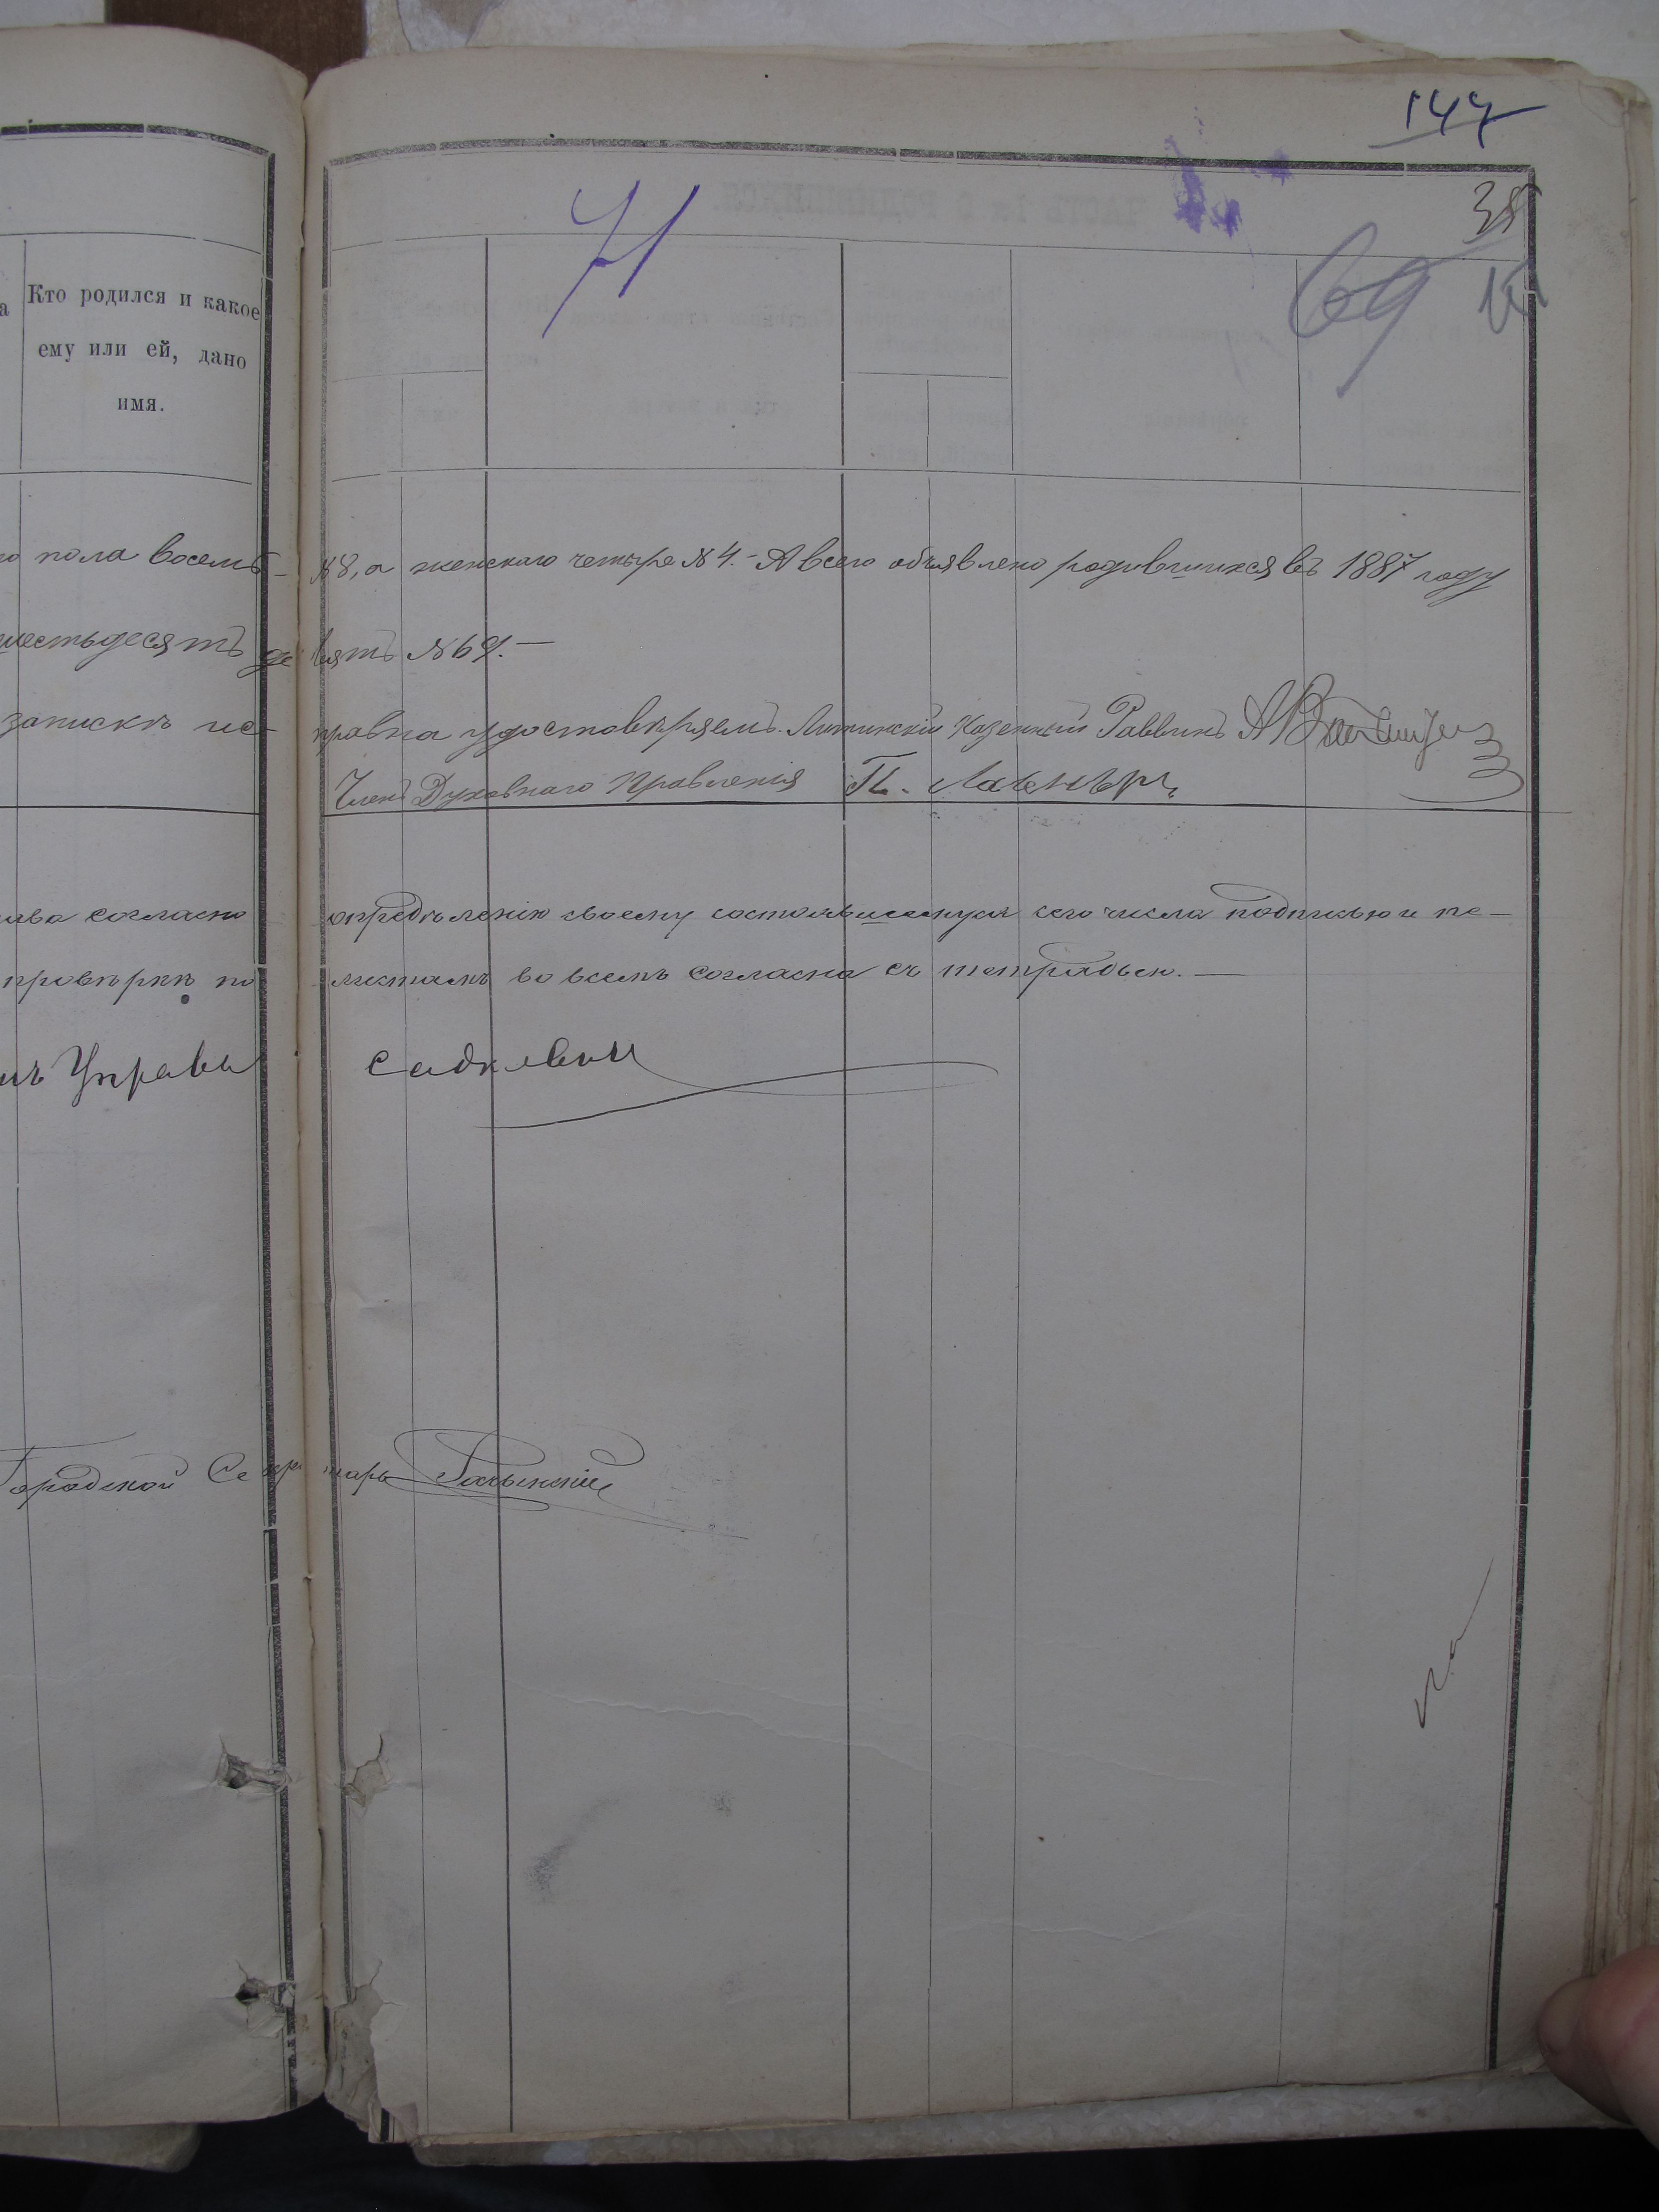 147
38
71
69
Кто родился и какое
ему или ей, дано
имя.
пола восемь — №8, а женскаго четыре №4. – А всего объявлено родившихся въ 1887 году
шестьдесятъ девять №69. —
запискѣ исправна удостовѣряемъ. Литинскій Казенный Раввинъ
Членъ Духовнаго Правленія
согласно опредѣленію своему состоявшемуся сего числа подписью и пе—
провѣркѣ по листамъ во всемъ согласна съ тетрадью. —
Управы
Городской Секретарь